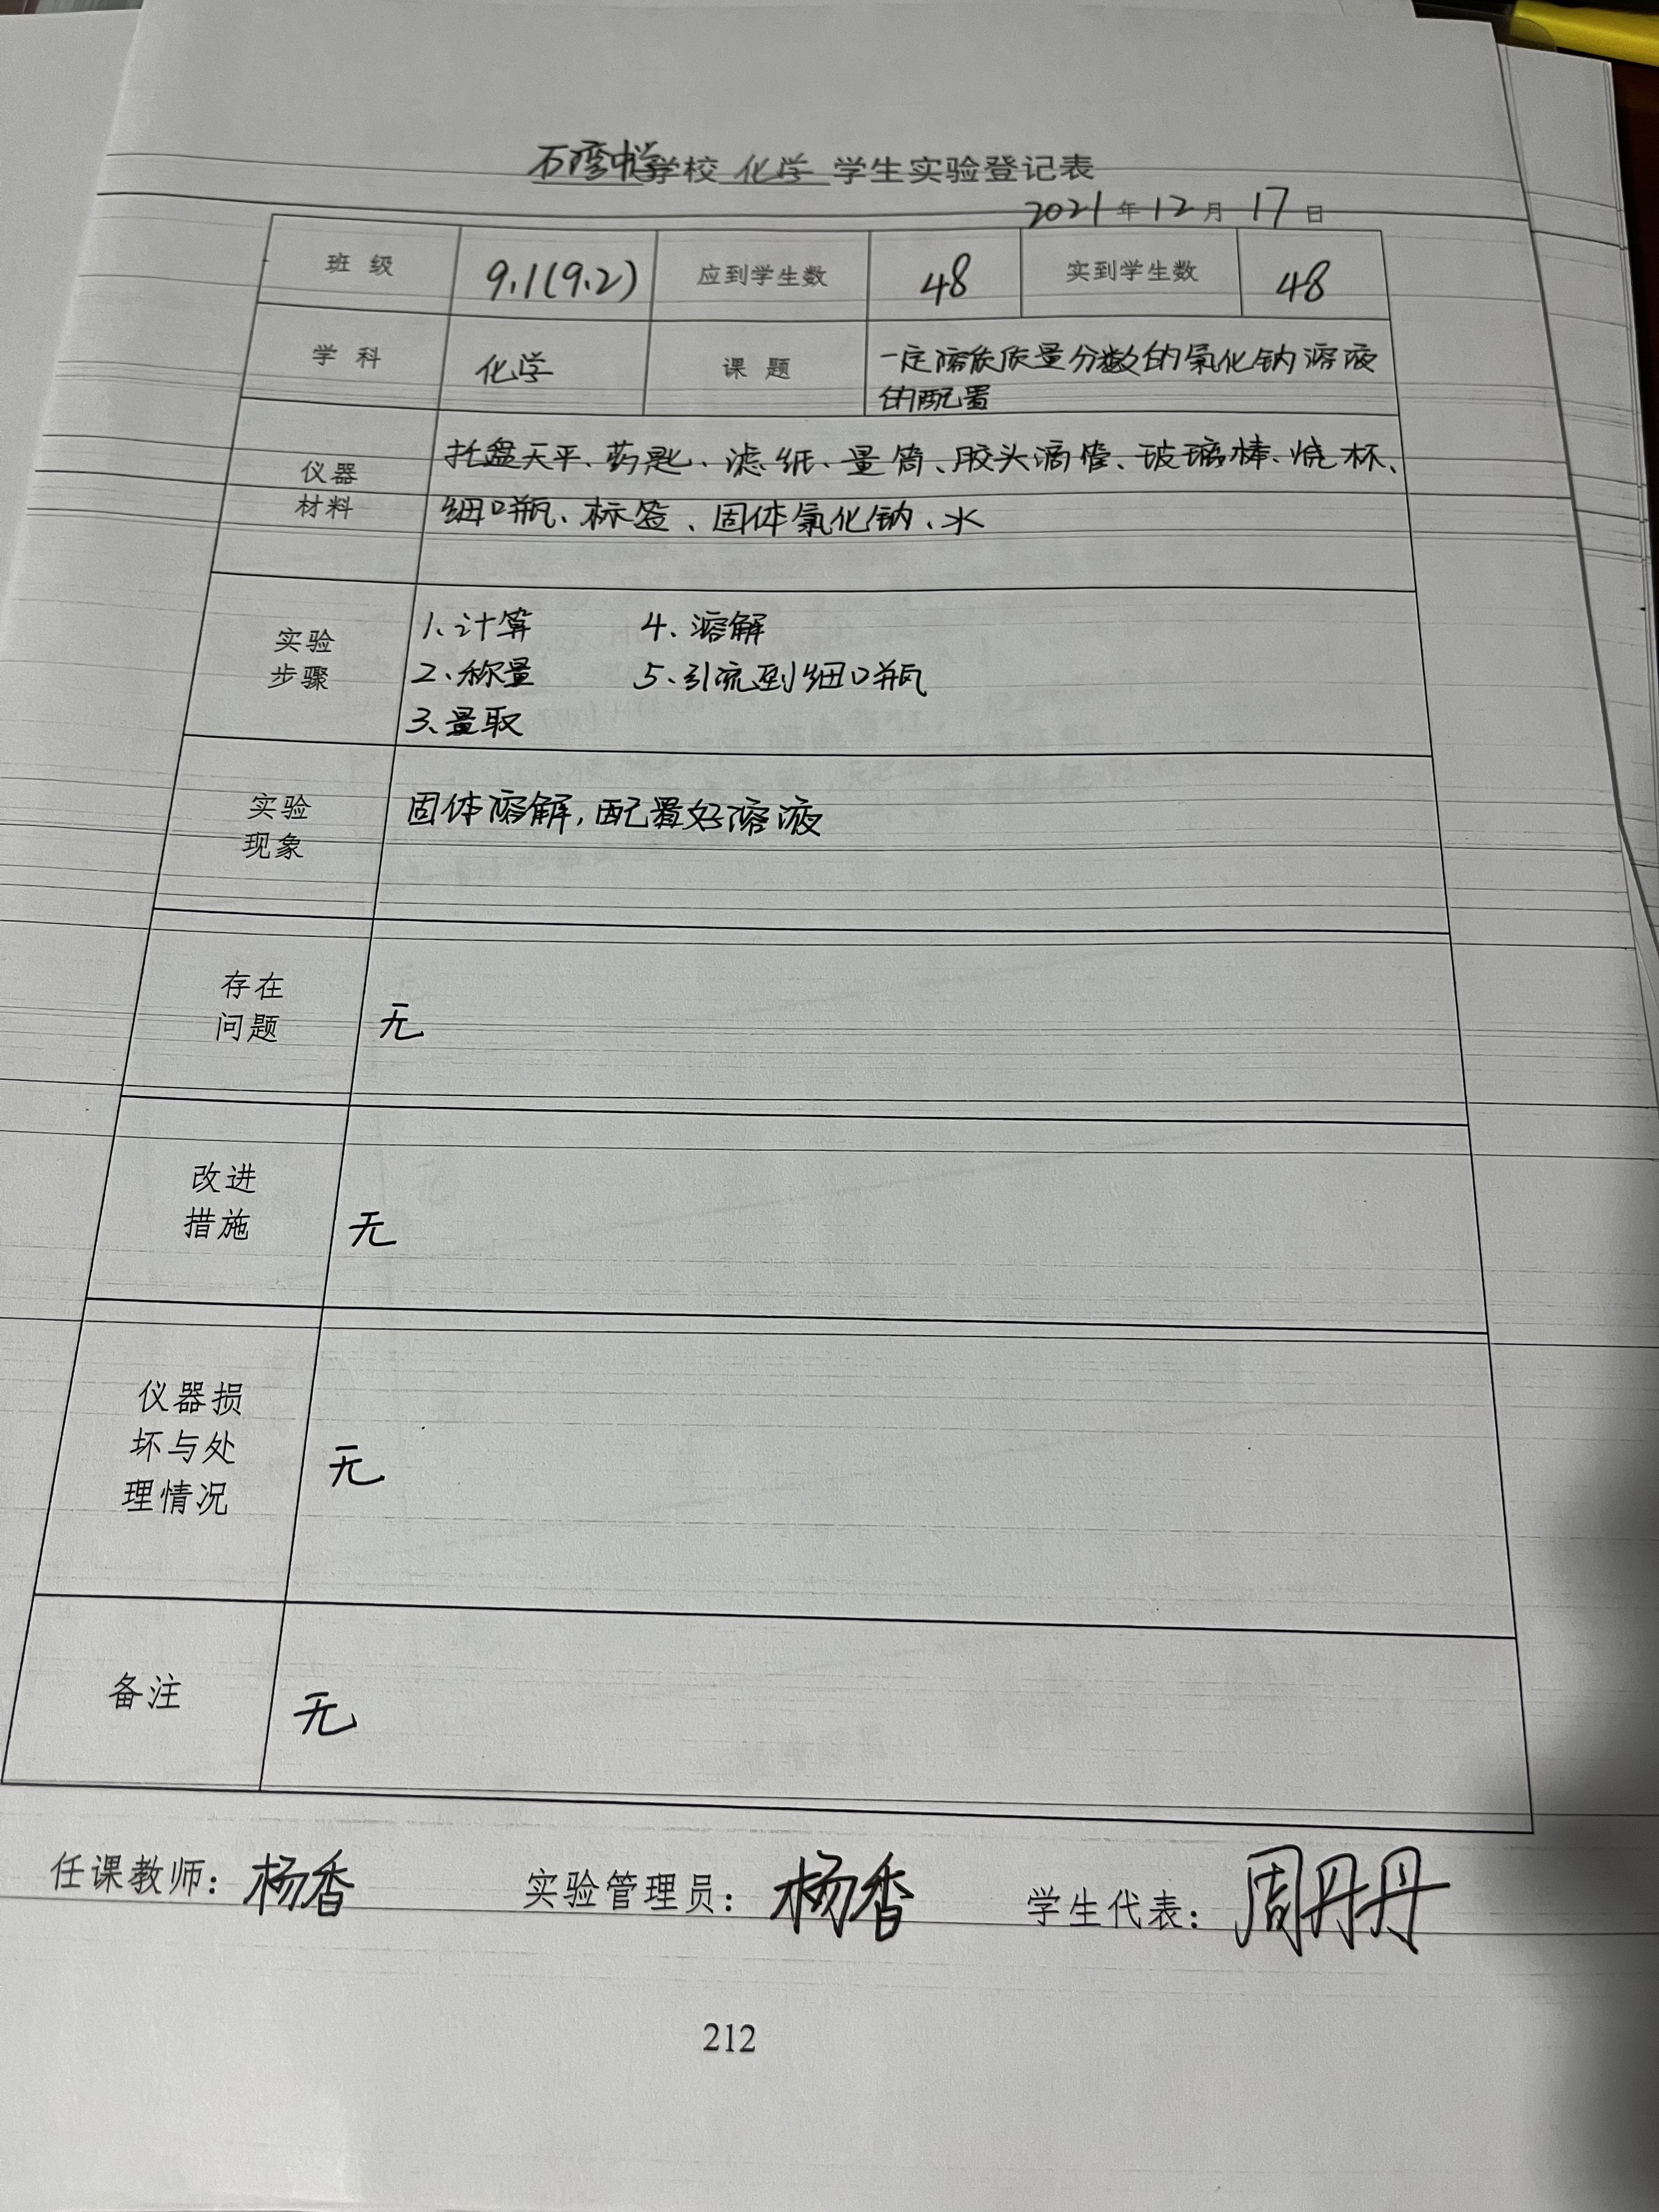 石湾中学学校 化学 学生实验登记表
2021年12月17日
班级 9.1(9.2) 应到学生数 48 实到学生数 48
学科 化学 课题 一定溶质质量分数的氯化钠溶液
的配置
仪器
材料
托盘天平、药匙、滤纸、量筒、胶头滴管、玻璃棒、烧杯、
细口瓶、标签、固体氯化钠、水
实验
步骤
1、计算 4、溶解
2、称量 5、引流到细口瓶
3、量取
实验
现象
固体溶解,配置好溶液
存在
问题
无
改进
措施
无
仪器损
坏与处
理情况
无
备注
无
任课教师：杨香 实验管理员：杨香 学生代表：周丹丹
212